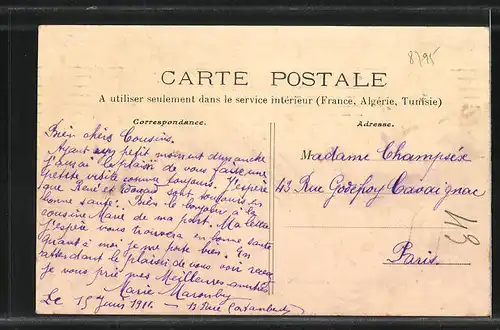 8795
CARTE POSTALE
A utiliser seulement dans le service intérieur (France, Algérie, Tunisie)
Correspondance.
Adresse.
Bien chers Cousins.
Ayant un petit moment dimanche
j'aurai le plaisir de vous faire une
petite visite comme toujours. J'espère
que René et sont toujours en
bonne santé. Bien le bonjour à la
cousine Marie de ma part. Ma lettre
j'espère vous trouvera en bonne santé
quant à moi je me porte bien. En
attendant le plaisir de vous voir recevez
je vous prie mes Meilleures amitiés
Marie
Le 15 Juin 1911 Rue
Madame Champseix
43 Rue Godefroy Cavaignac
Paris.